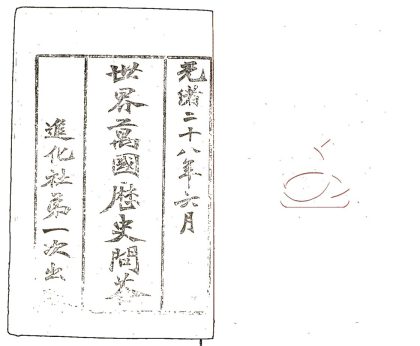 光緒二十八年六月
世界萬國歷史問荅
進化社第一次出